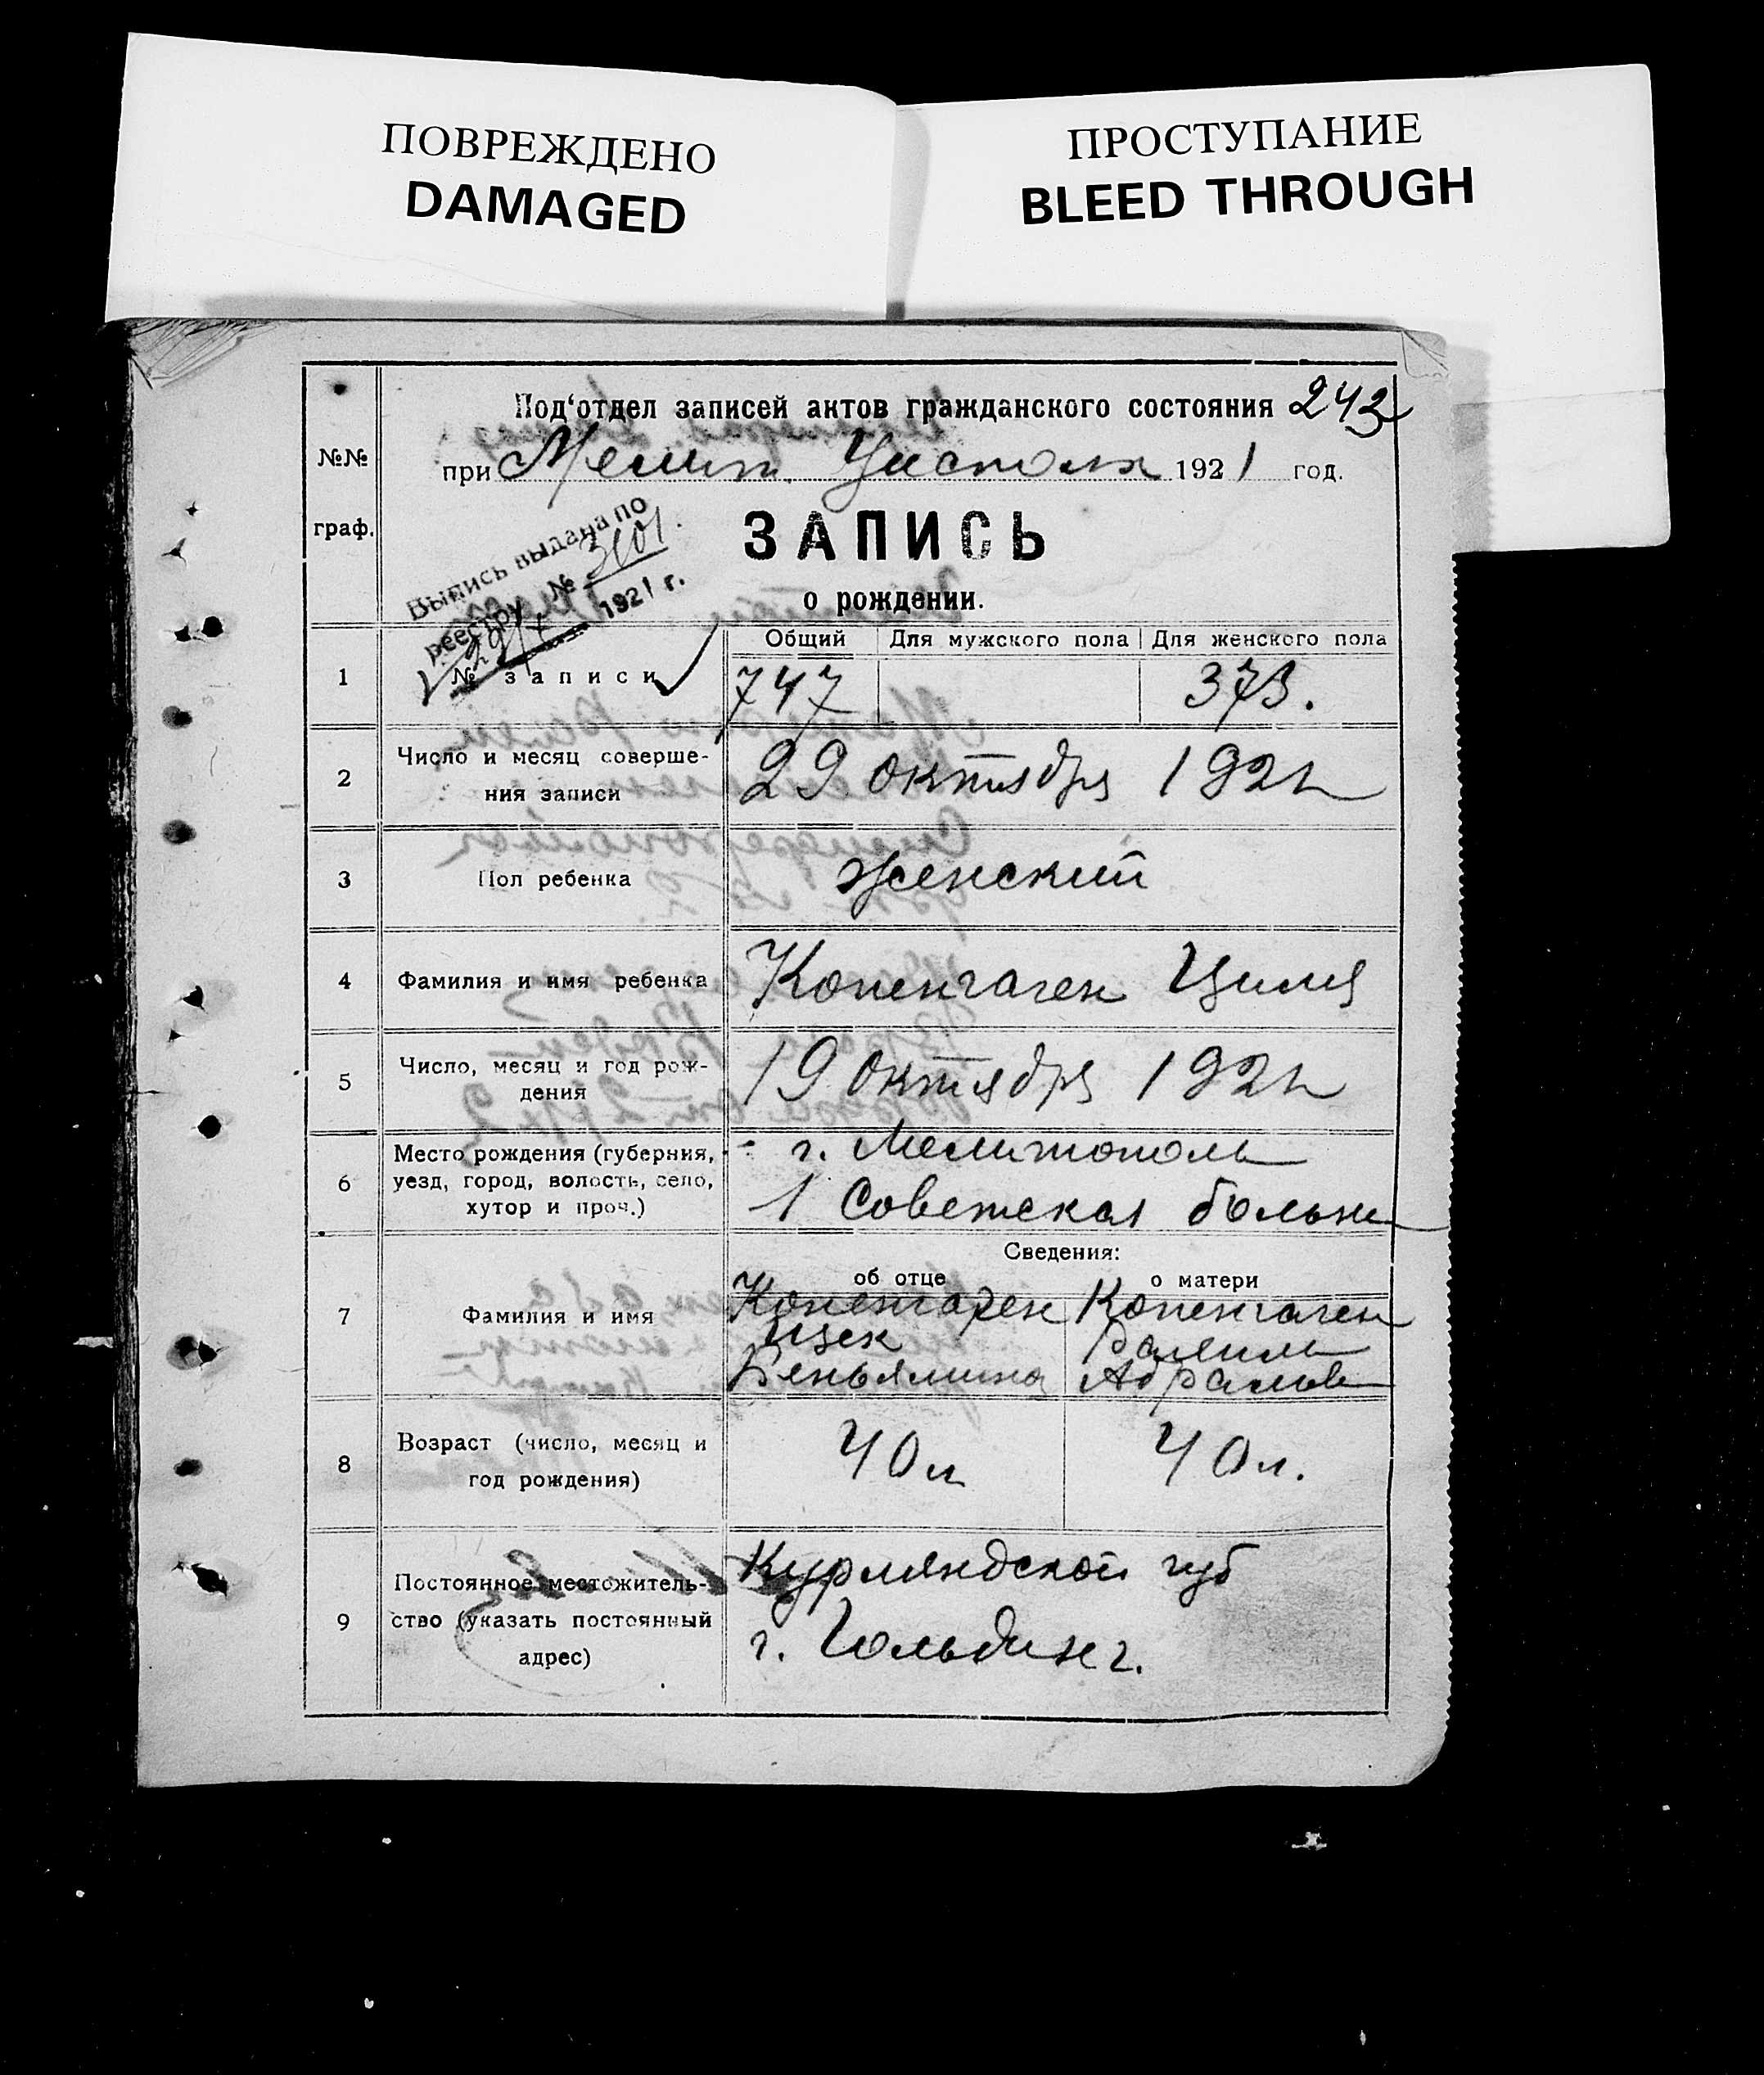 ПОВРЕЖДЕНО
DAMAGED
ПРОСТУПАНИЕ
BLEED THROUGH
Под‘отдел записей актов гражданского состояния 242
при Мелит. 1921 год.
№№
граф.
ЗАПИСЬ
о рождении.
Выпись выдана по
реестру № 3101
29/X 1921 г.
Общий Для мужского пола Для женского пола
1 № записи 747 373.
2 Число и месяц соверше-
ния записи
29 октября 1921
3 Пол ребенка женский
4 Фамилия и имя ребенка Копенгаген Циля
5 Число, месяц и год рож-
дения
19 октября 1921
6 Место рождения (губерния,
уезд, город, волость, село,
хутор и проч.)
г. Мелитополь
1 Советская больн
Сведения:
об отце о матери
7 Фамилия и имя
Копенгаген Копенгаген
Ицек
Беньямина Абрамов
8 Возраст (число, месяц и
год рождения)
40 л 40 л.
9 Постоянное местожитель-
ство (указать постоянный
адрес)
Курляндской губ
г. Гольдинг.